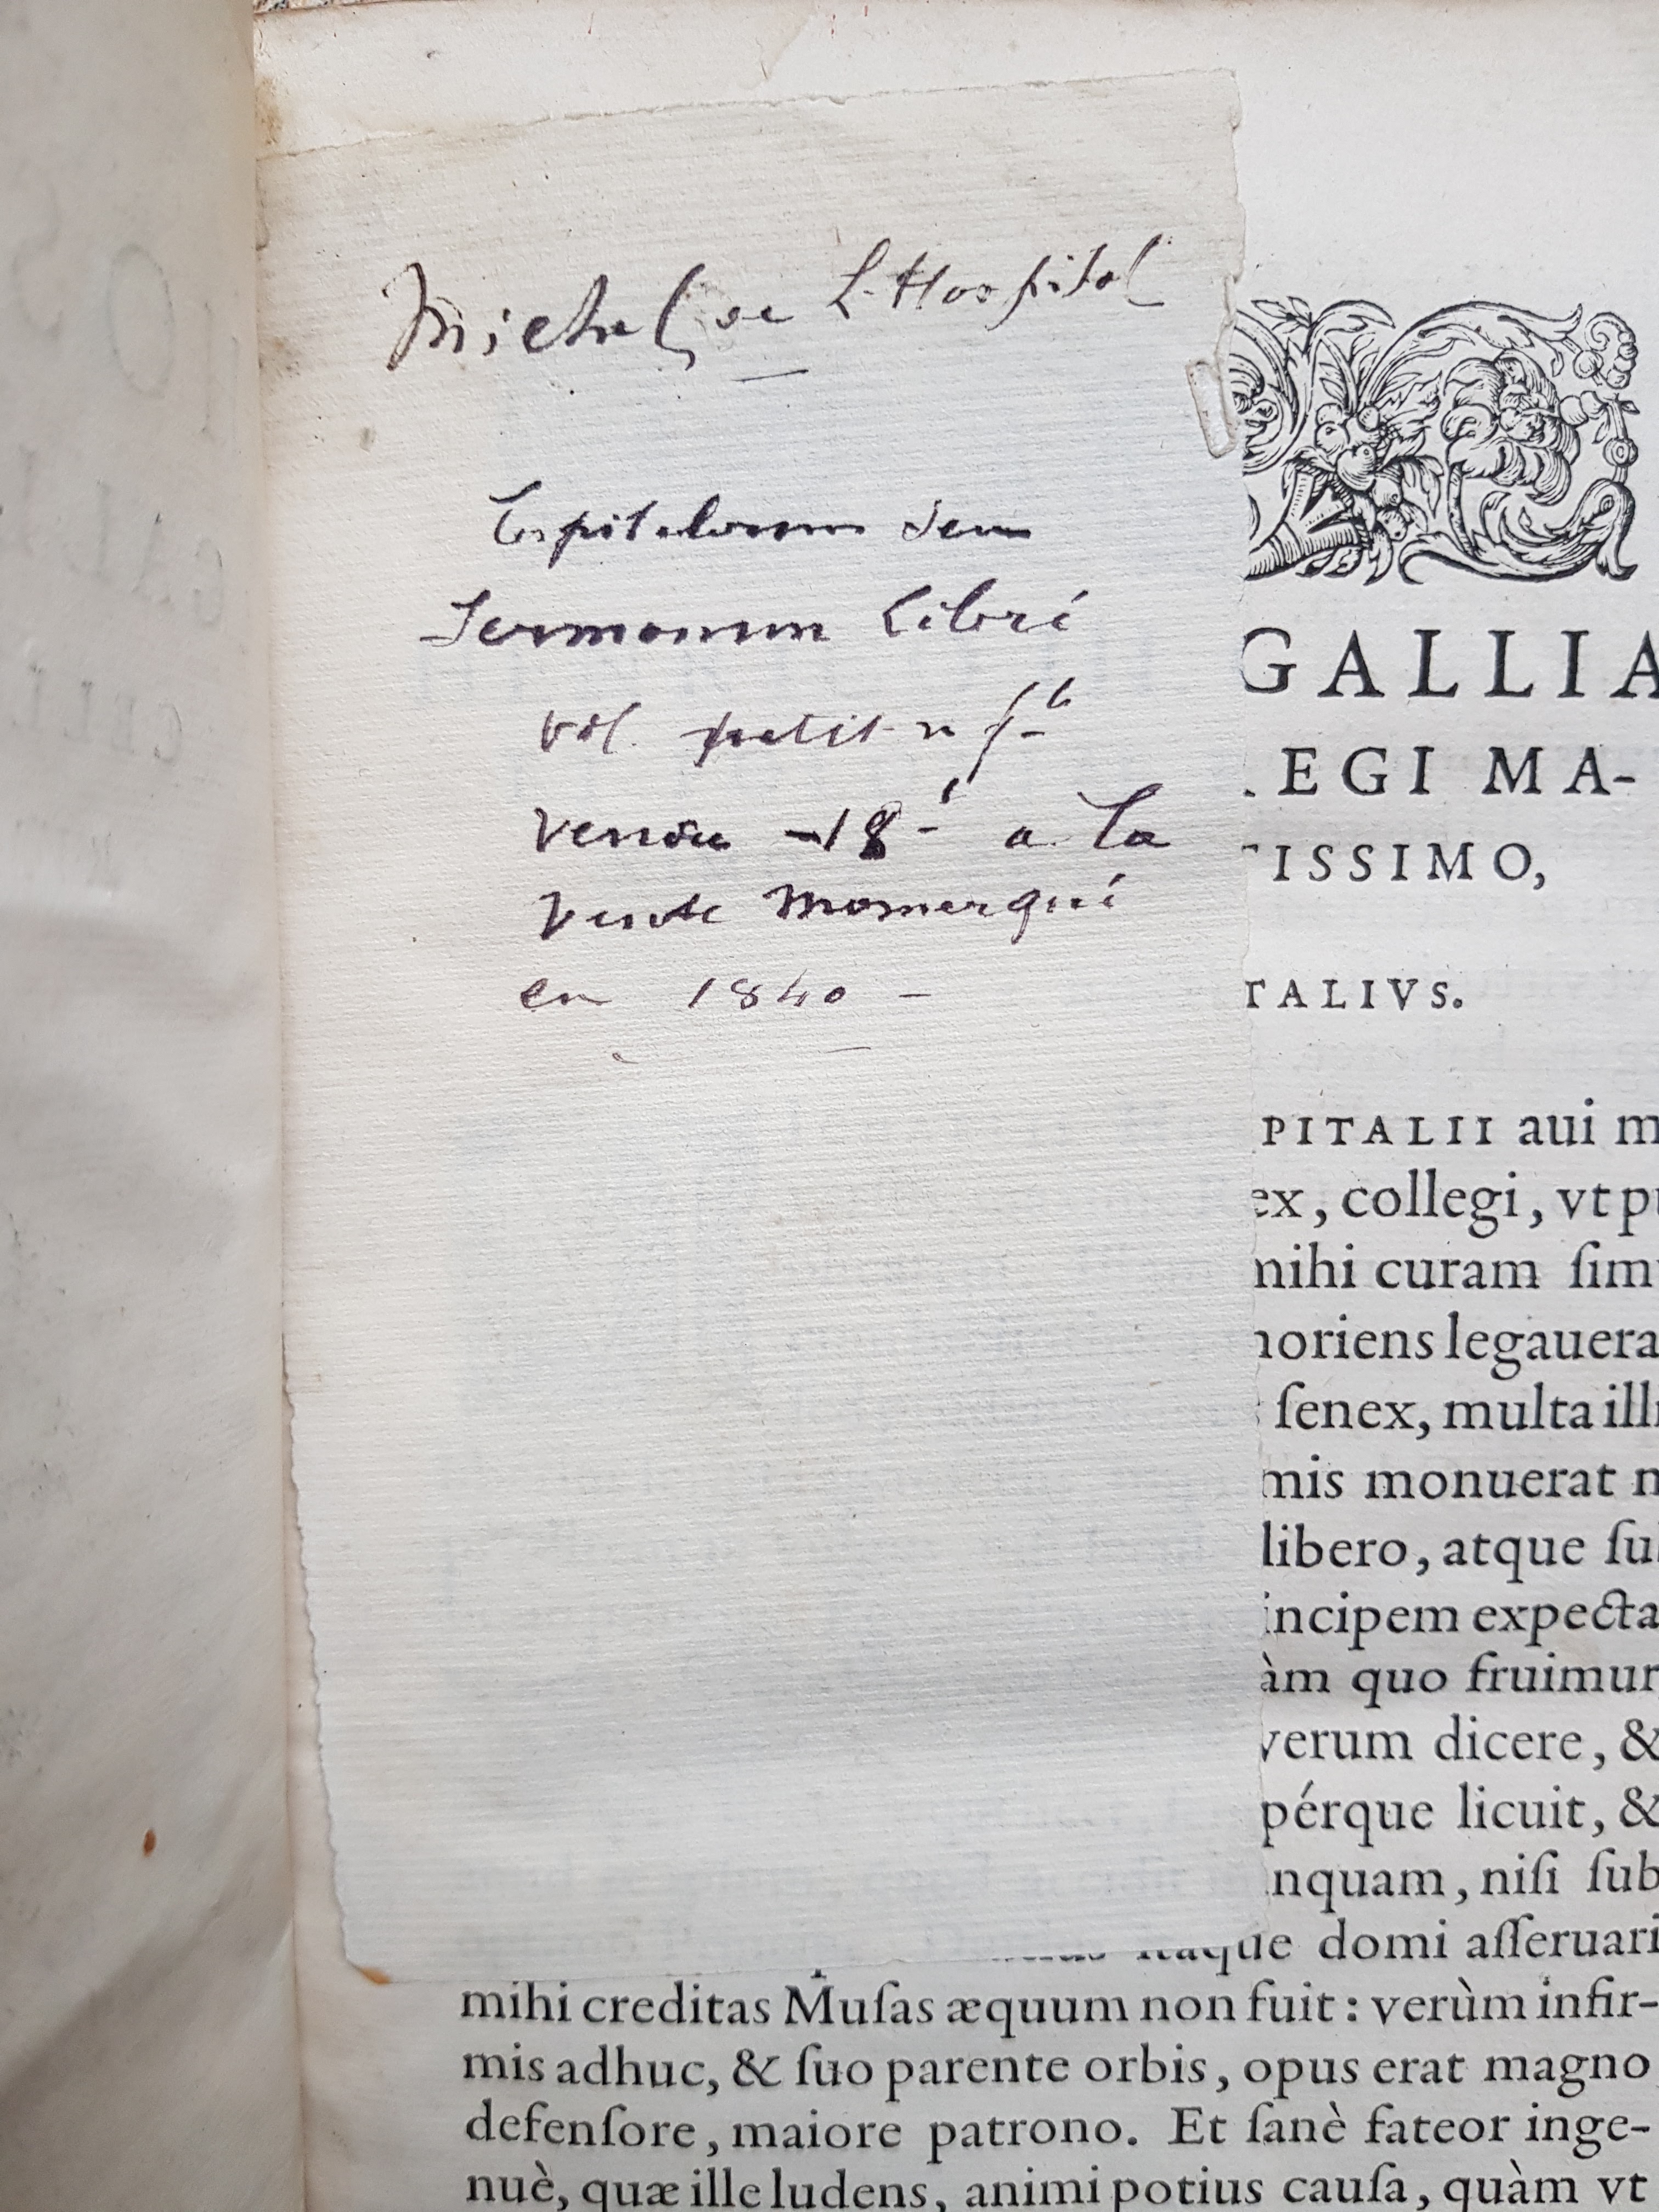 Michel de L'Hospital
Espitolarum seu
Sermonum Libri
vol. petit in f°
vendu 18 f a la
vente Momerqué
en 1840 –
GALLIA
EGI MA-
ISSIMO,
TALIVS.
PITALII aui m
ex, collegi, vt pu
mihi curam ſim
moriens legauera
ſenex, multa ill
mis monuerat n
libero, atque ſu
incipem expecta
àm quo fruimur
verum dicere, &
pérque licuit, &
nquam, niſi ſub
itaque domi aſſeruari
mihi creditas Muſas æquum non fuit : verùm infir-
mis adhuc, & ſuo parente orbis, opus erat magno
defenſore, maiore patrono. Et ſanè fateor inge-
nuè, quæ ille ludens, animi potius cauſa, quàm vt